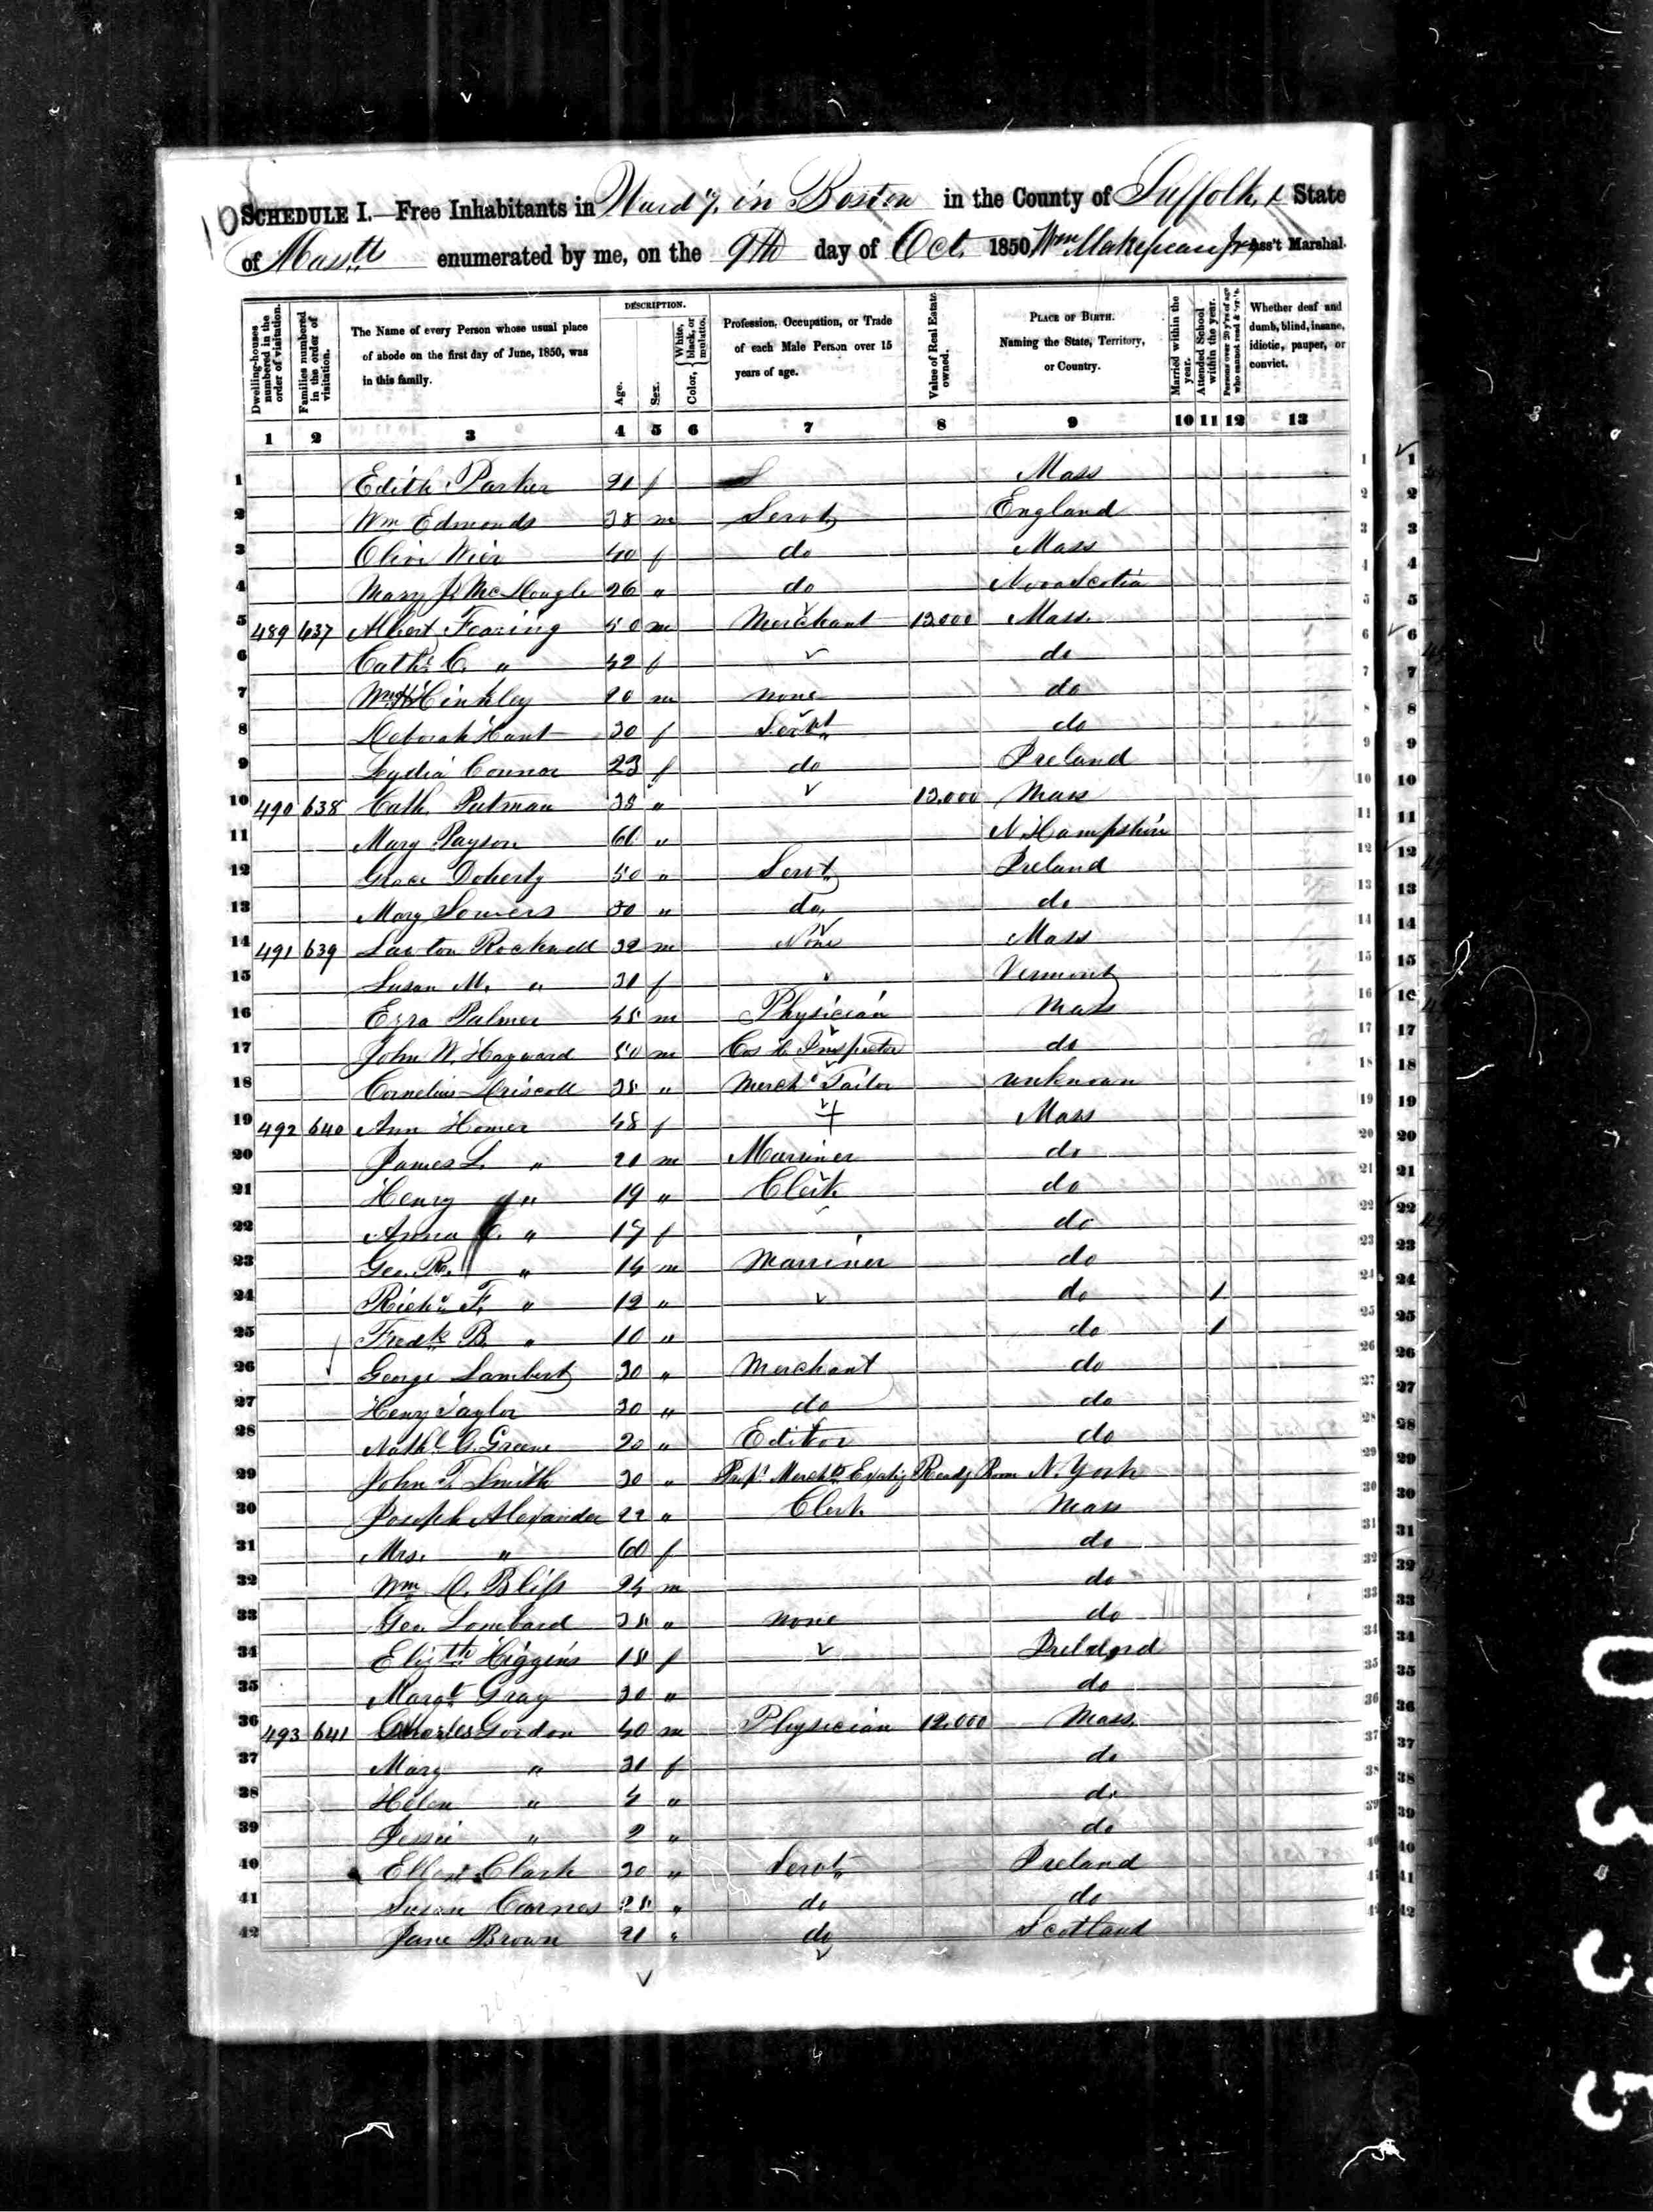 10
SCHEDULE I.—Free Inhabitants in Ward 7. in Boston in the County of Suffolk, & State
of Masstt enumerated by me, on the 9th day of Oct. 1850 Wm Makepeace Jr, Ass't Marshal.
Dwelling-houses numbered in the order of visitation.
Families numbered in the order of visitation.
The Name of every Person whose usual place of abode on the first day of June, 1850, was in this family.
DESCRIPTION.
Age.
Sex.
Color, { White, black, or mulatto.
Profession, Occupation, or Trade of each Male Person over 15 years of age.
Value of Real Estate owned.
PLACE OF BIRTH. Naming the State, Territory, or Country.
Married within the year.
Attended School within the year.
Persons over 20 y'rs of age who cannot read & wr'e.
Whether deaf and dumb, blind, insane, idiotic, pauper, or convict.
1 2 3 4 5 6 7 8 9 10 11 12 13
1 Edith Parker 21 f Mass 1
2 Wm Edmonds 38 m Servt England 2
3 Olive Weir 40 f do Mass 3
4 Mary J. 26 " do Nova Scotia 4
5 489 637 Albert Fearing 50 m Merchant 12.000 Mass. 5
6 Cath. C. " 42 f do 6
7 Wm H Hinkley 20 m none do 7
8 Deborah Hunt 30 f Servt do 8
9 Lydia Connor 23 f do Ireland 9
10 490 638 Cath. Putman 38 " 12.000 Mass 10
11 Mary Payson 60 " N. Hampshire 11
12 Grace Doherty 50 " Servt Ireland 12
13 Mary Somers 30 " do, do 13
14 491 639 Rockwell 32 m None Mass 14
15 Susan M. " 31 f Vermont 15
16 Ezra Palmer 45 m Physician Mass 16
17 John W. Hayward 50 m Cus H Inspector do 17
18 Cornelius Driscoll 38 " Mercht Tailor unknown 18
19 492 640 Ann Homer 48 f Mass 19
20 James L. " 21 m Marriner do 20
21 Henry " 19 " Clerk do 21
22 Anna C. " 17 f do 22
23 Geo. R. " 14 m Marriner do 23
24 Richd F. " 12 " do 1 24
25 Fredk B. " 10 " do 1 25
26 George Lambert 30 " Merchant do 26
27 Henry Taylor 30 " do do 27
28 Nathl G. Greene 20 " Editor do 28
29 John T. Smith 30 " Mercht Readg Room N. York 29
30 Joseph Alexander 22 " Clerk Mass 30
31 Mrs. " 60 f do 31
32 Wm D. Bliss 24 m do 32
33 Geo. Lombard 38 " none do 33
34 Elizth Higgins 18 f Ireland 34
35 Margt Gray 30 " do 35
36 493 641 Charles Gordon 40 m Physician 12.000 Mass. 36
37 Mary " 31 f do 37
38 Helen " 4 " do 38
39 Jessie " 2 " do 39
40 Ellen Clark 30 " Servt Ireland 40
41 Susan Carnes 28 " do do 41
42 Jane Brown 21 " do Scotland 42
0
3
3
5